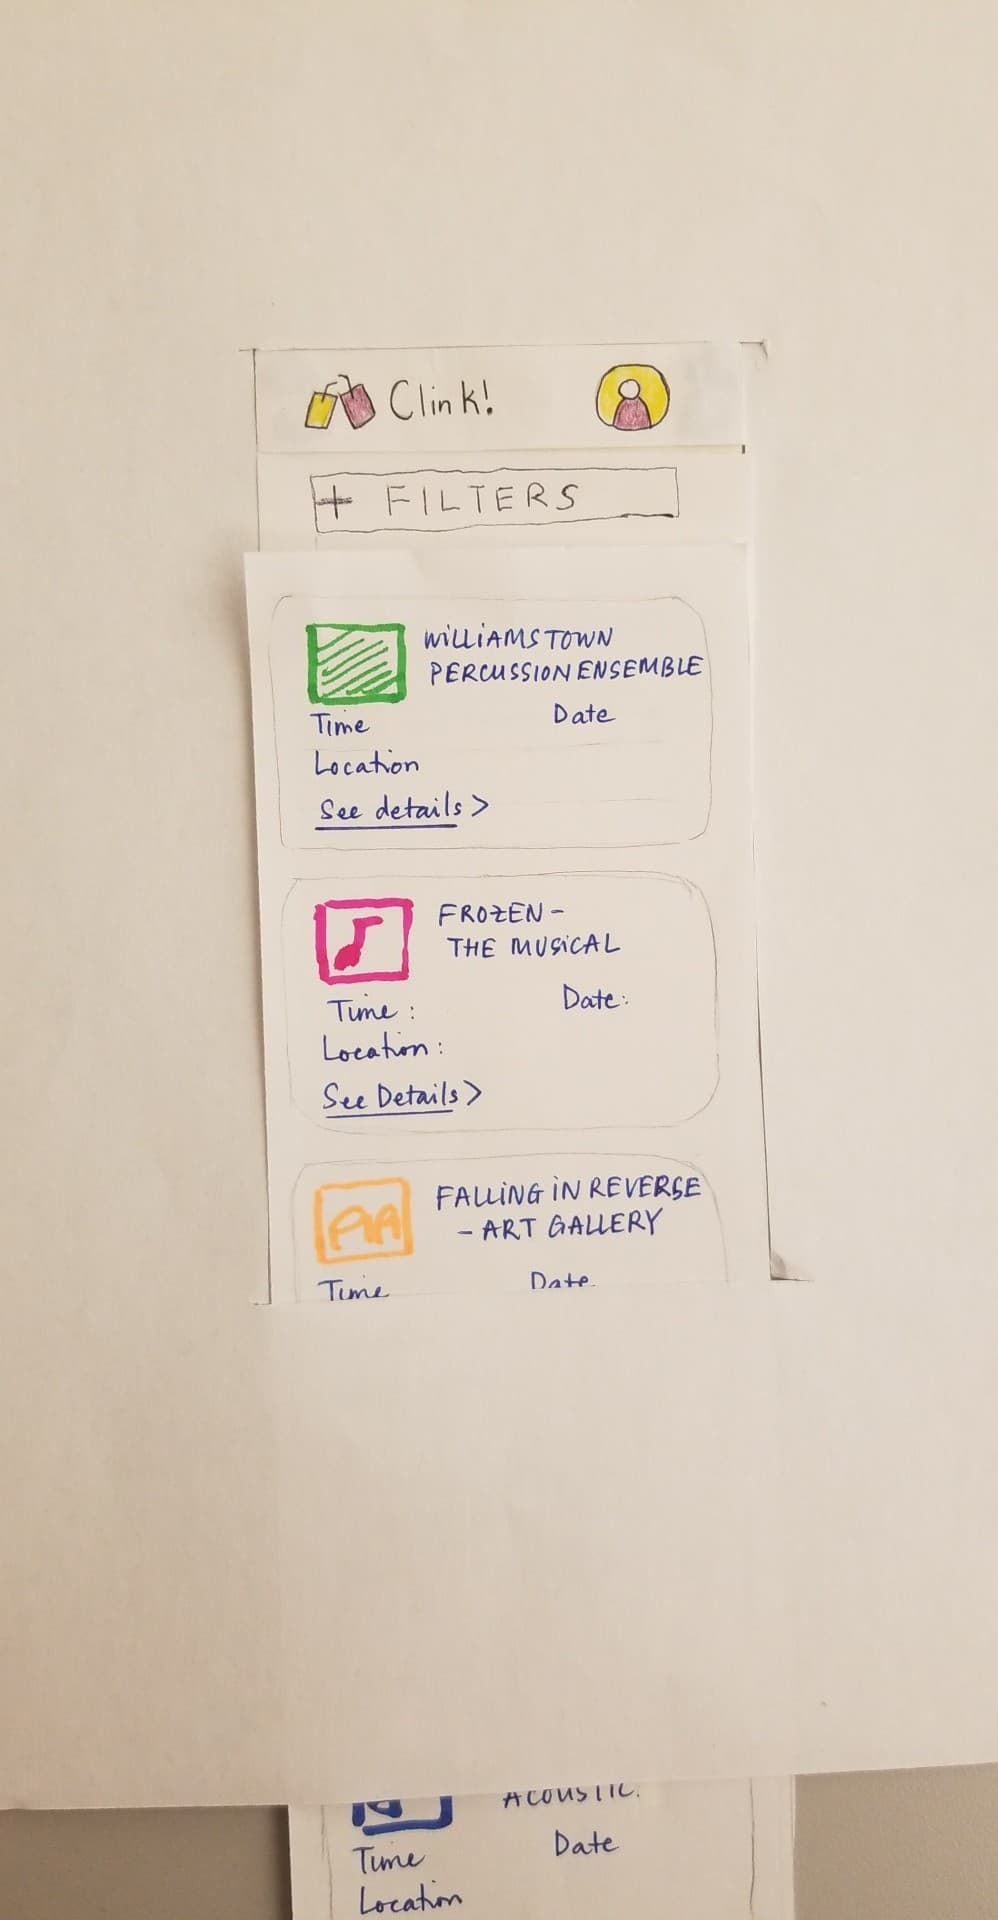 Clink!
+ FILTERS
WILLIAMSTOWN
PERCUSSION ENSEMBLE
Time Date
Location
See details >
FROZEN -
THE MUSICAL
Time : Date:
Location :
See Details >
FALLING IN REVERSE
- ART GALLERY
Time Date
ACOUSTIC.
Time Date
Location